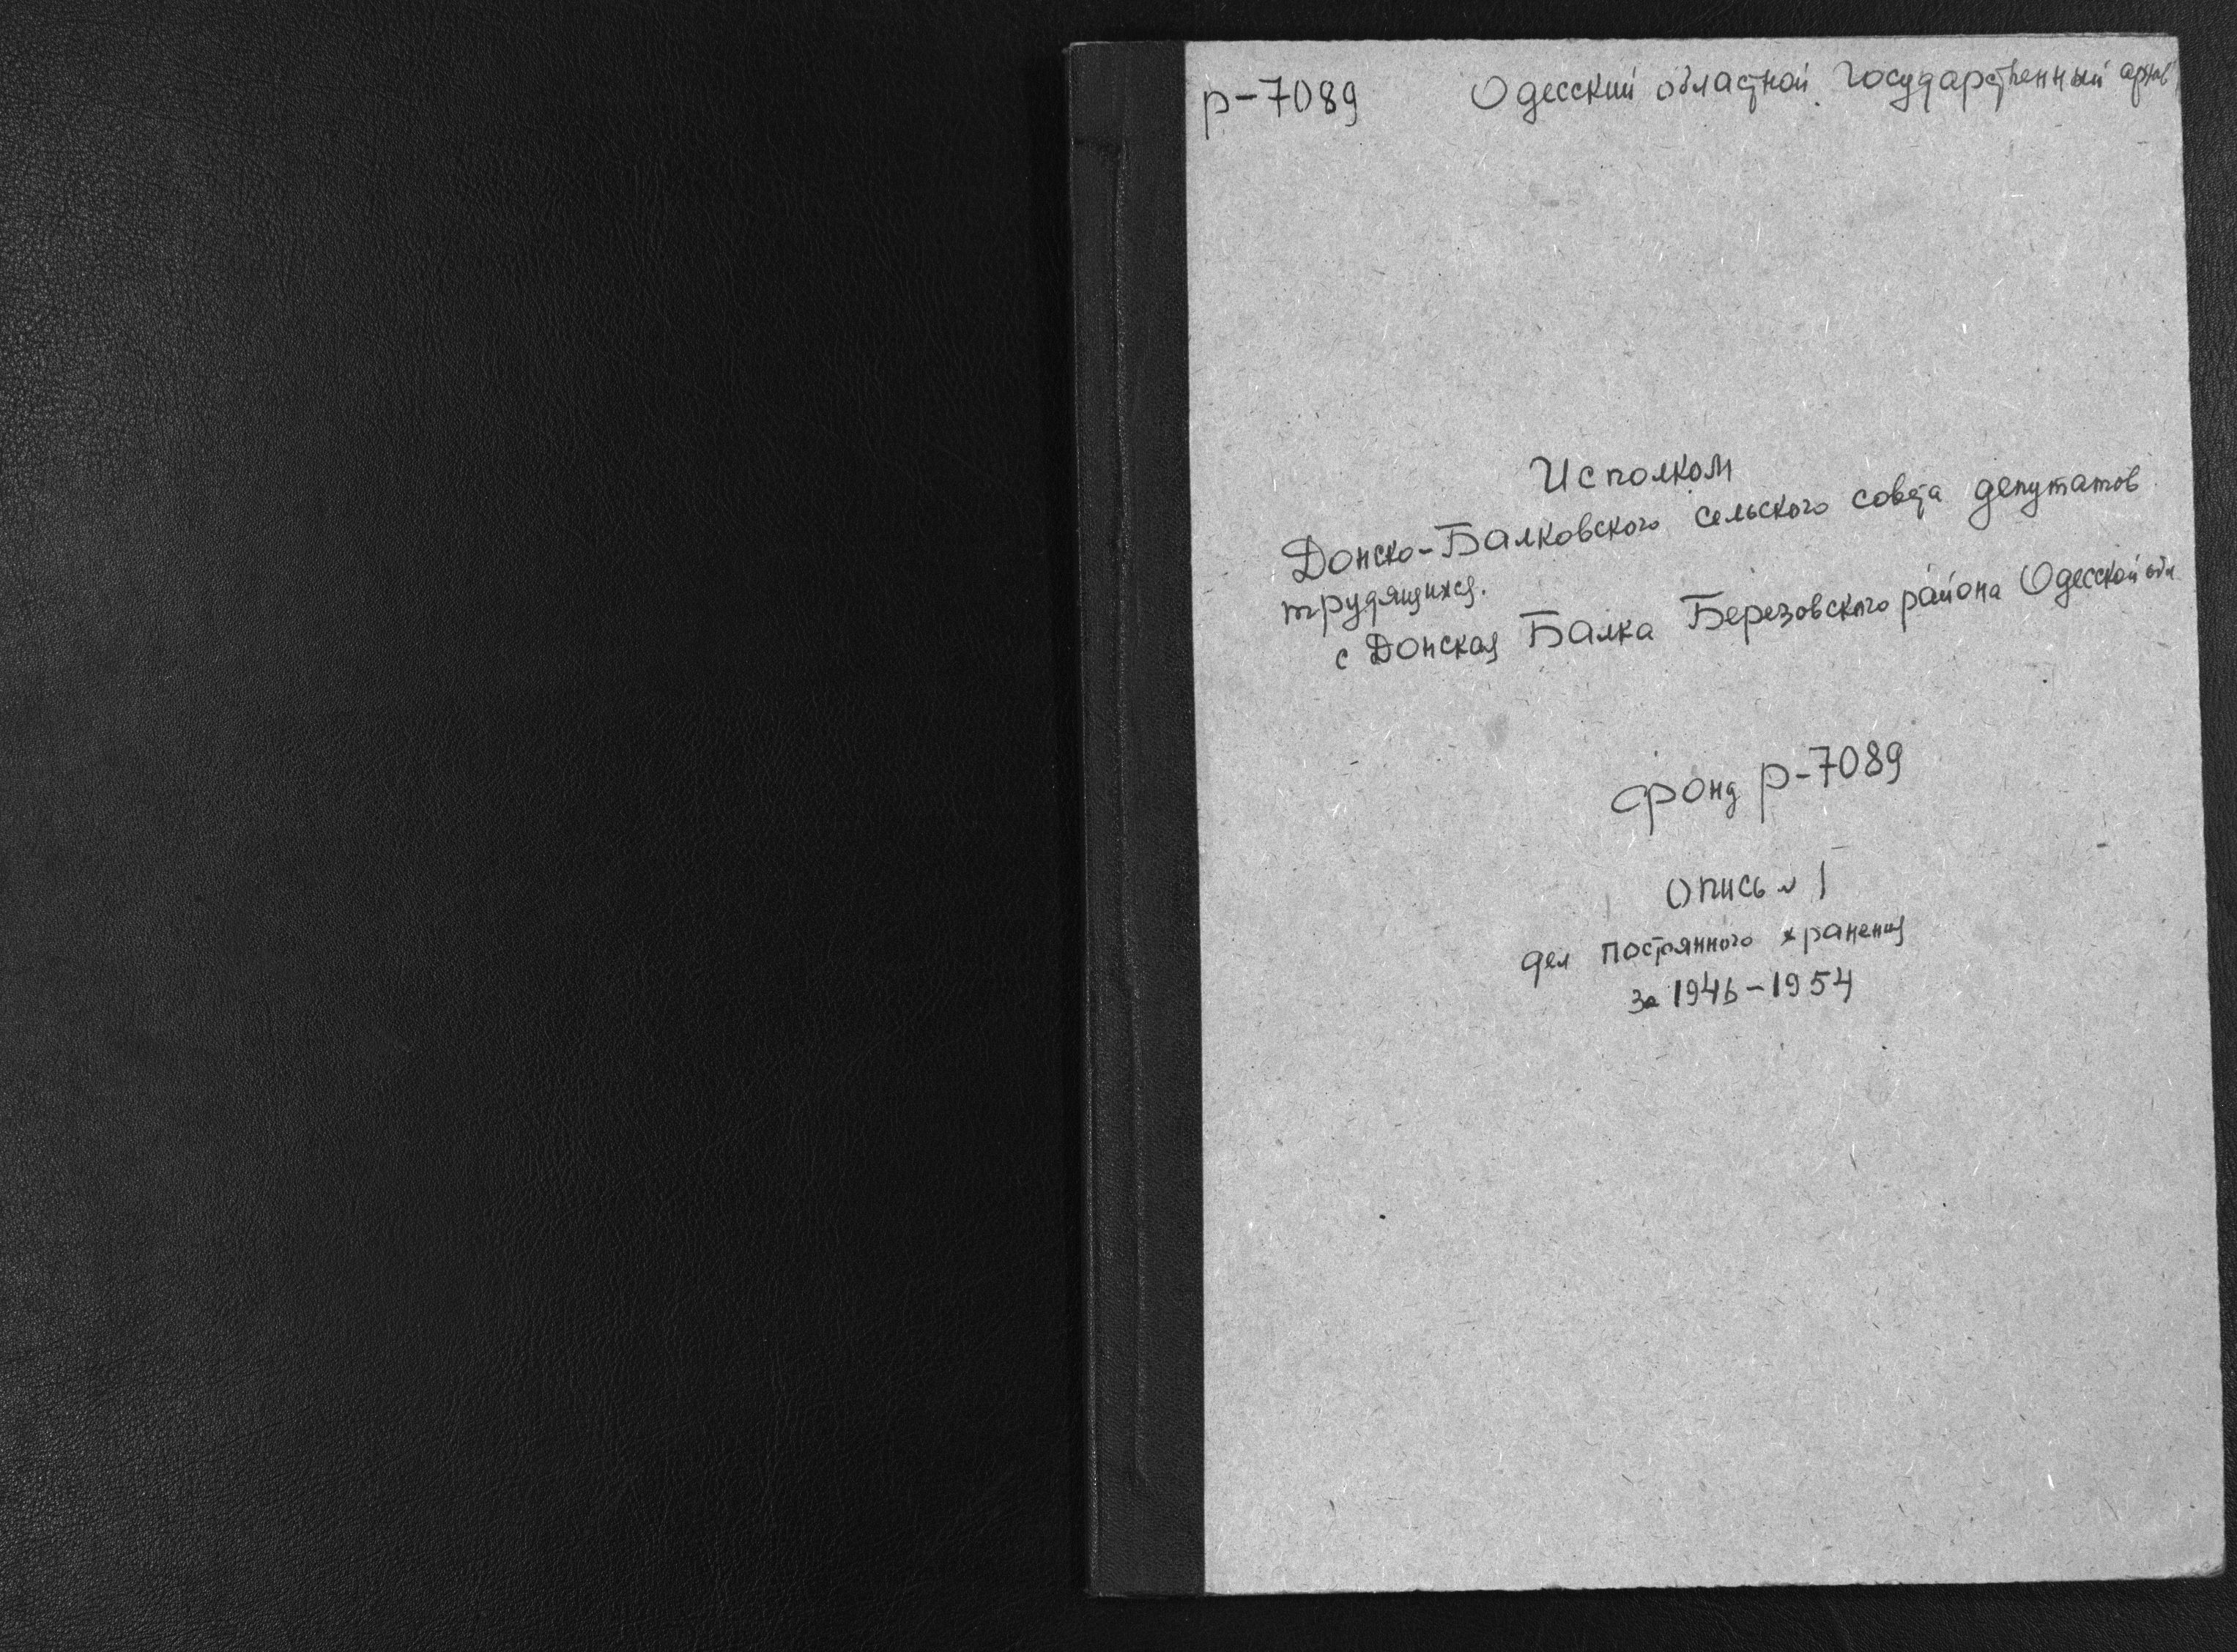 р-7089 Одесский областной государственный архив
Исполком
Донско-Балковского сельского совета депутатов
трудящихся.
с Донская Балка Березовского района Одесской обл
фонд р-7089
Опись № 1
дел постоянного хранения
за 1946-1954